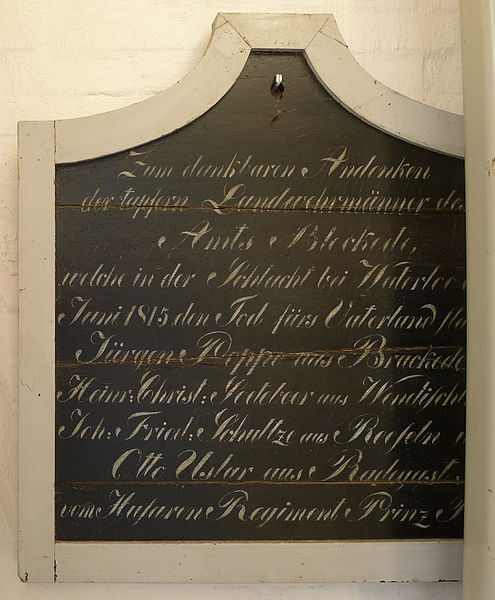 Zum dankbaren Andenken
der tapfern Landwehrmänner des
Amts Bleckede,
welche in der Schlacht bei Waterloo
Juni 1815 den Tod fürs Vaterland
Jürgen Poppe aus Brackede
Heinr: Christ: aus
Joh: Fried: Schultze aus Reeßeln
Otto Uslar aus Radegast.
vom Husaren Regiment Prinz